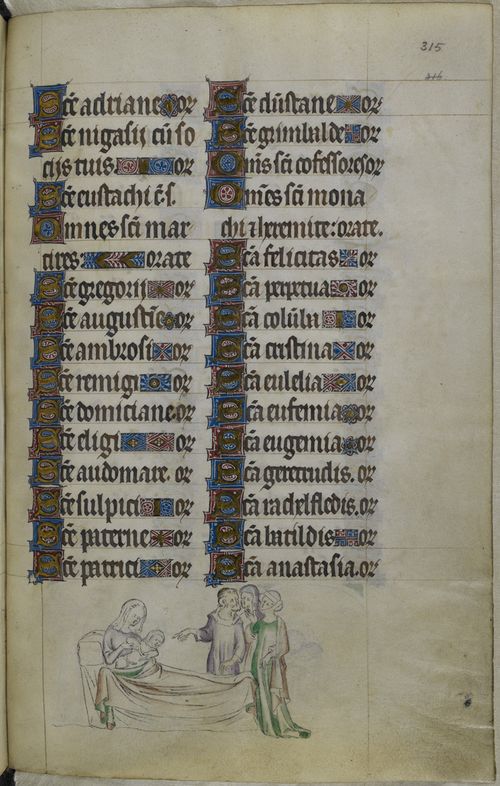 315
Sc̄e adriane or
Sc̄e nigasij cū so
cijs tuis. or
Sc̄e eustachi c̄ s.
Omnes sc̄i mar
tires orate
Sc̄e gregorij or
Sc̄e augustīe or
Sc̄e ambrosi or
Sc̄e remigi or
Sc̄e domiciane or
Sc̄e eligi or
Sc̄e audomare. or
Sc̄e sulpici or
Sc̄e paterne or
Sc̄e patrici or
Sc̄e dūstane or
Sc̄e grimbalde or
Om̄s sc̄i cōfessores or
Om̄es sc̄i mona
chi ⁊ heremite: orate.
Sc̄a felicitas or
Sc̄a perpetua or
Sc̄a colūba or
Sc̄a cristina or
Sc̄a eulelia or
Sc̄a eufemia or
Sc̄a eugemia or
Sc̄a geretrudis. or
Sc̄a radelfledis. or
Sc̄a batildis or
Sc̄a anastasia. or